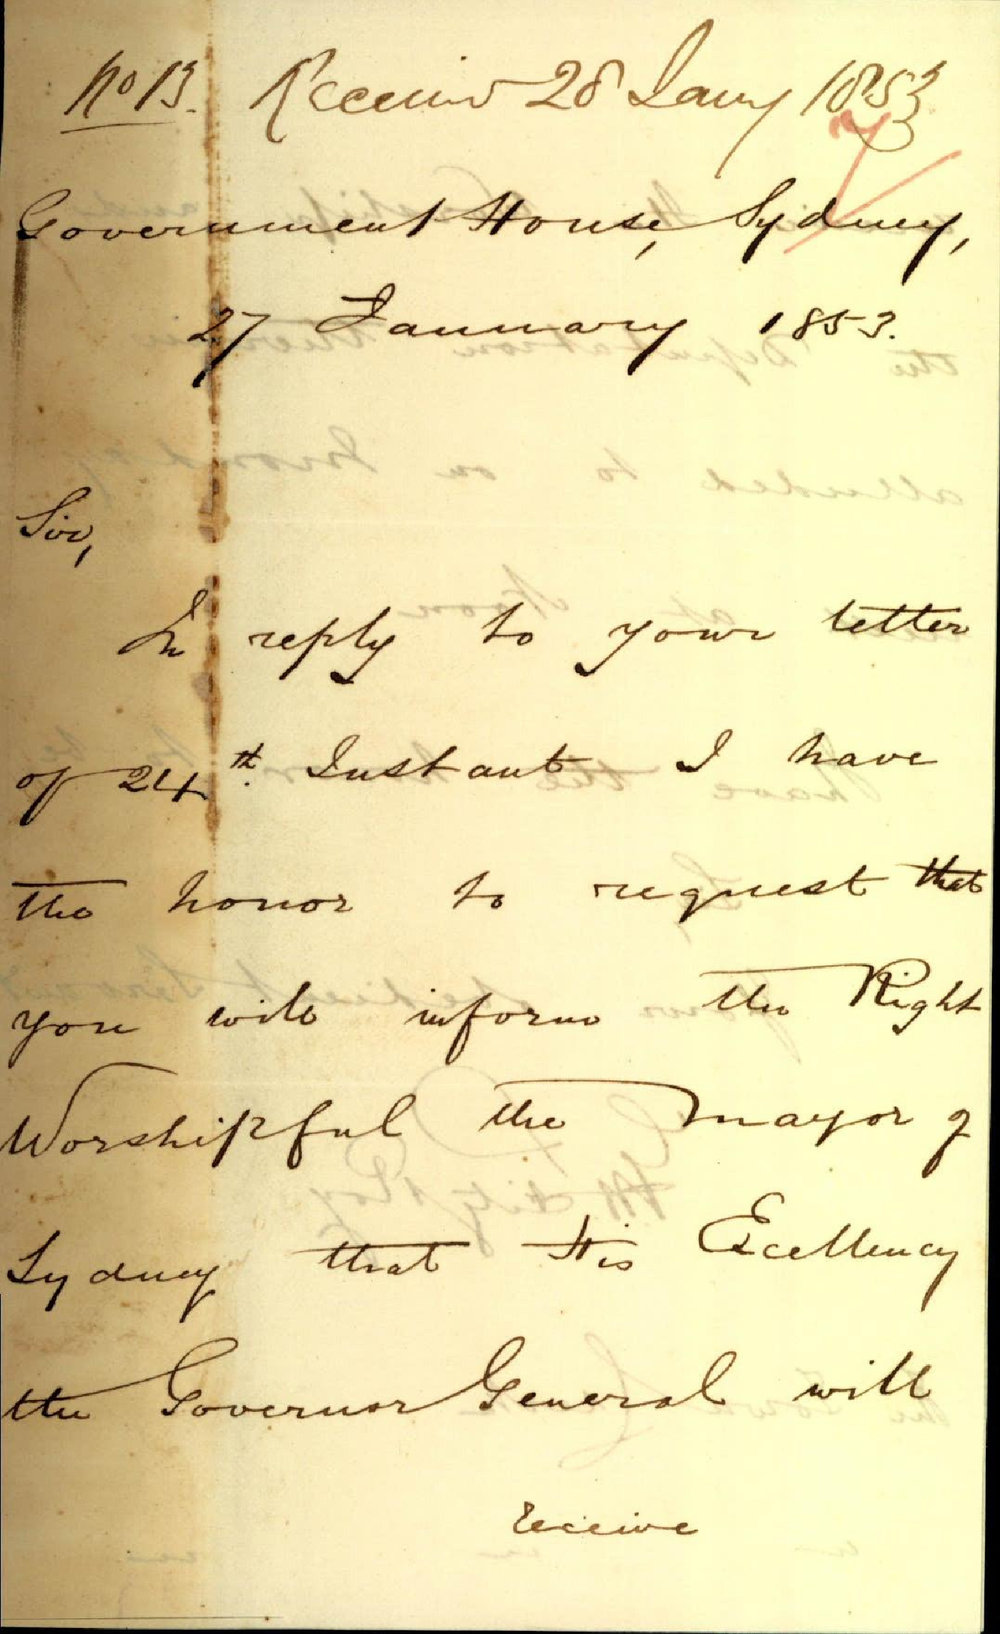 No 13. Received 28 Jany 1853
Government House, Sydney,
27 January 1853.
Sir,
In reply to your letter
of 24th. Instant I have
the honor to request that
you will inform the Right
Worshipful the Mayor of
Sydney that His Excellency
the Governor General will
receive